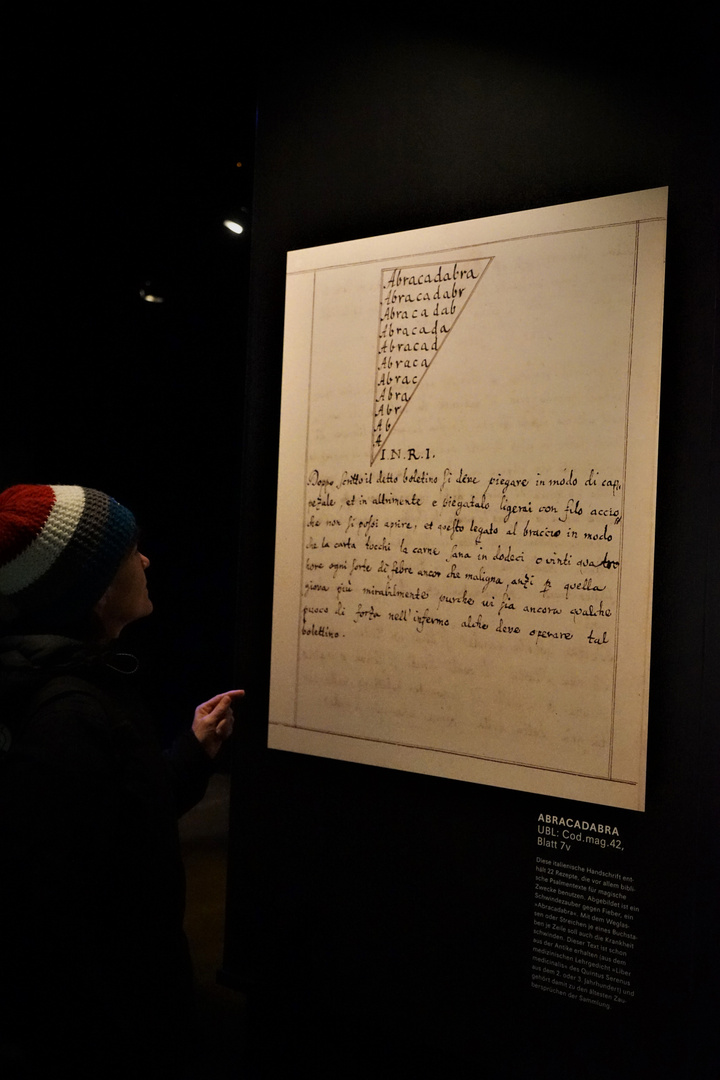 Abracadabra
Abracadabr
Abracadab
Abracada
Abracad
Abraca
Abrac
Abra
Abr
Ab
A
I.N.R.I.
Doppo scritto il detto boletino si deve piegare in modo di
et in altrimente e piegatolo ligerai con filo accio
che non si possi aprire, et questo legato al braccio in modo
che la carta tocchi la carne sana in dodeci o vinti quatro
hore ogni sorte di febre ancor che maligna, anzi quella
giova più mirabilmente purche vi sia ancora qualche
puoco di forza nell'infermo alche deve operare tal
bolettino.
ABRACADABRA
UBL: Cod.mag.42,
Blatt 7v
Diese italienische Handschrift ent-
hält 22 Rezepte, die vor allem bibli-
sche Psalmentexte für magische
Zwecke benutzen. Abgebildet ist ein
Schwindezauber gegen Fieber, ein
»Abracadabra«. Mit dem Weglas-
sen oder Streichen je eines Buchsta-
ben je Zeile soll auch die Krankheit
schwinden. Dieser Text ist schon
aus der Antike erhalten (aus dem
medizinischen Lehrgedicht »Liber
medicinalis« des Quintus Serenus
aus dem 2. oder 3. Jahrhundert) und
gehört damit zu den ältesten Zau-
bersprüchen der Sammlung.